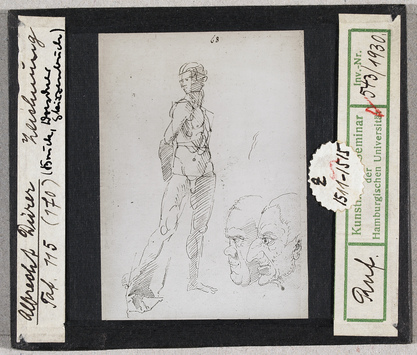 Albrecht Dürer Zeichnung
Taf. 115 (170) (Bruck, Dresdner
Skizzenbuch)
63
E
1511-1515
Kunsthist. Seminar
der
Hamburgischen Universität
Inv.-Nr.
543/1930.